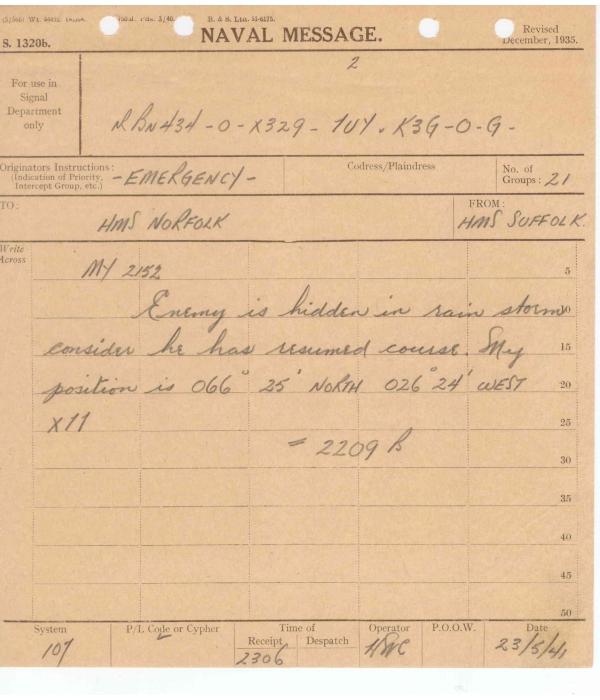 R. & S. Ltd. 51-6175.
S. 1320b.
NAVAL MESSAGE.
Revised
December, 1935.
2
For use in
Signal
Department
only
-O-X329-1UY.K3G-O-G-
Originators Instructions:
(Indication of Priority,
Intercept Group, etc.)
-EMERGENCY-
Codress/Plaindress
No. of
Groups: 21
TO:
HMS NORFOLK
FROM:
HMS SUFFOLK.
Write
Across
MY 2152
5
Enemy is hidden in rain storm
10
consider he has resumed course. My
15
position is 066° 25' NORTH 026° 24' WEST
20
X11
25
= 2209 B
30
35
40
45
50
System
P/L Code or Cypher
Time of
Receipt
Despatch
Operator
P.O.O.W.
Date
107
2306
23/5/41